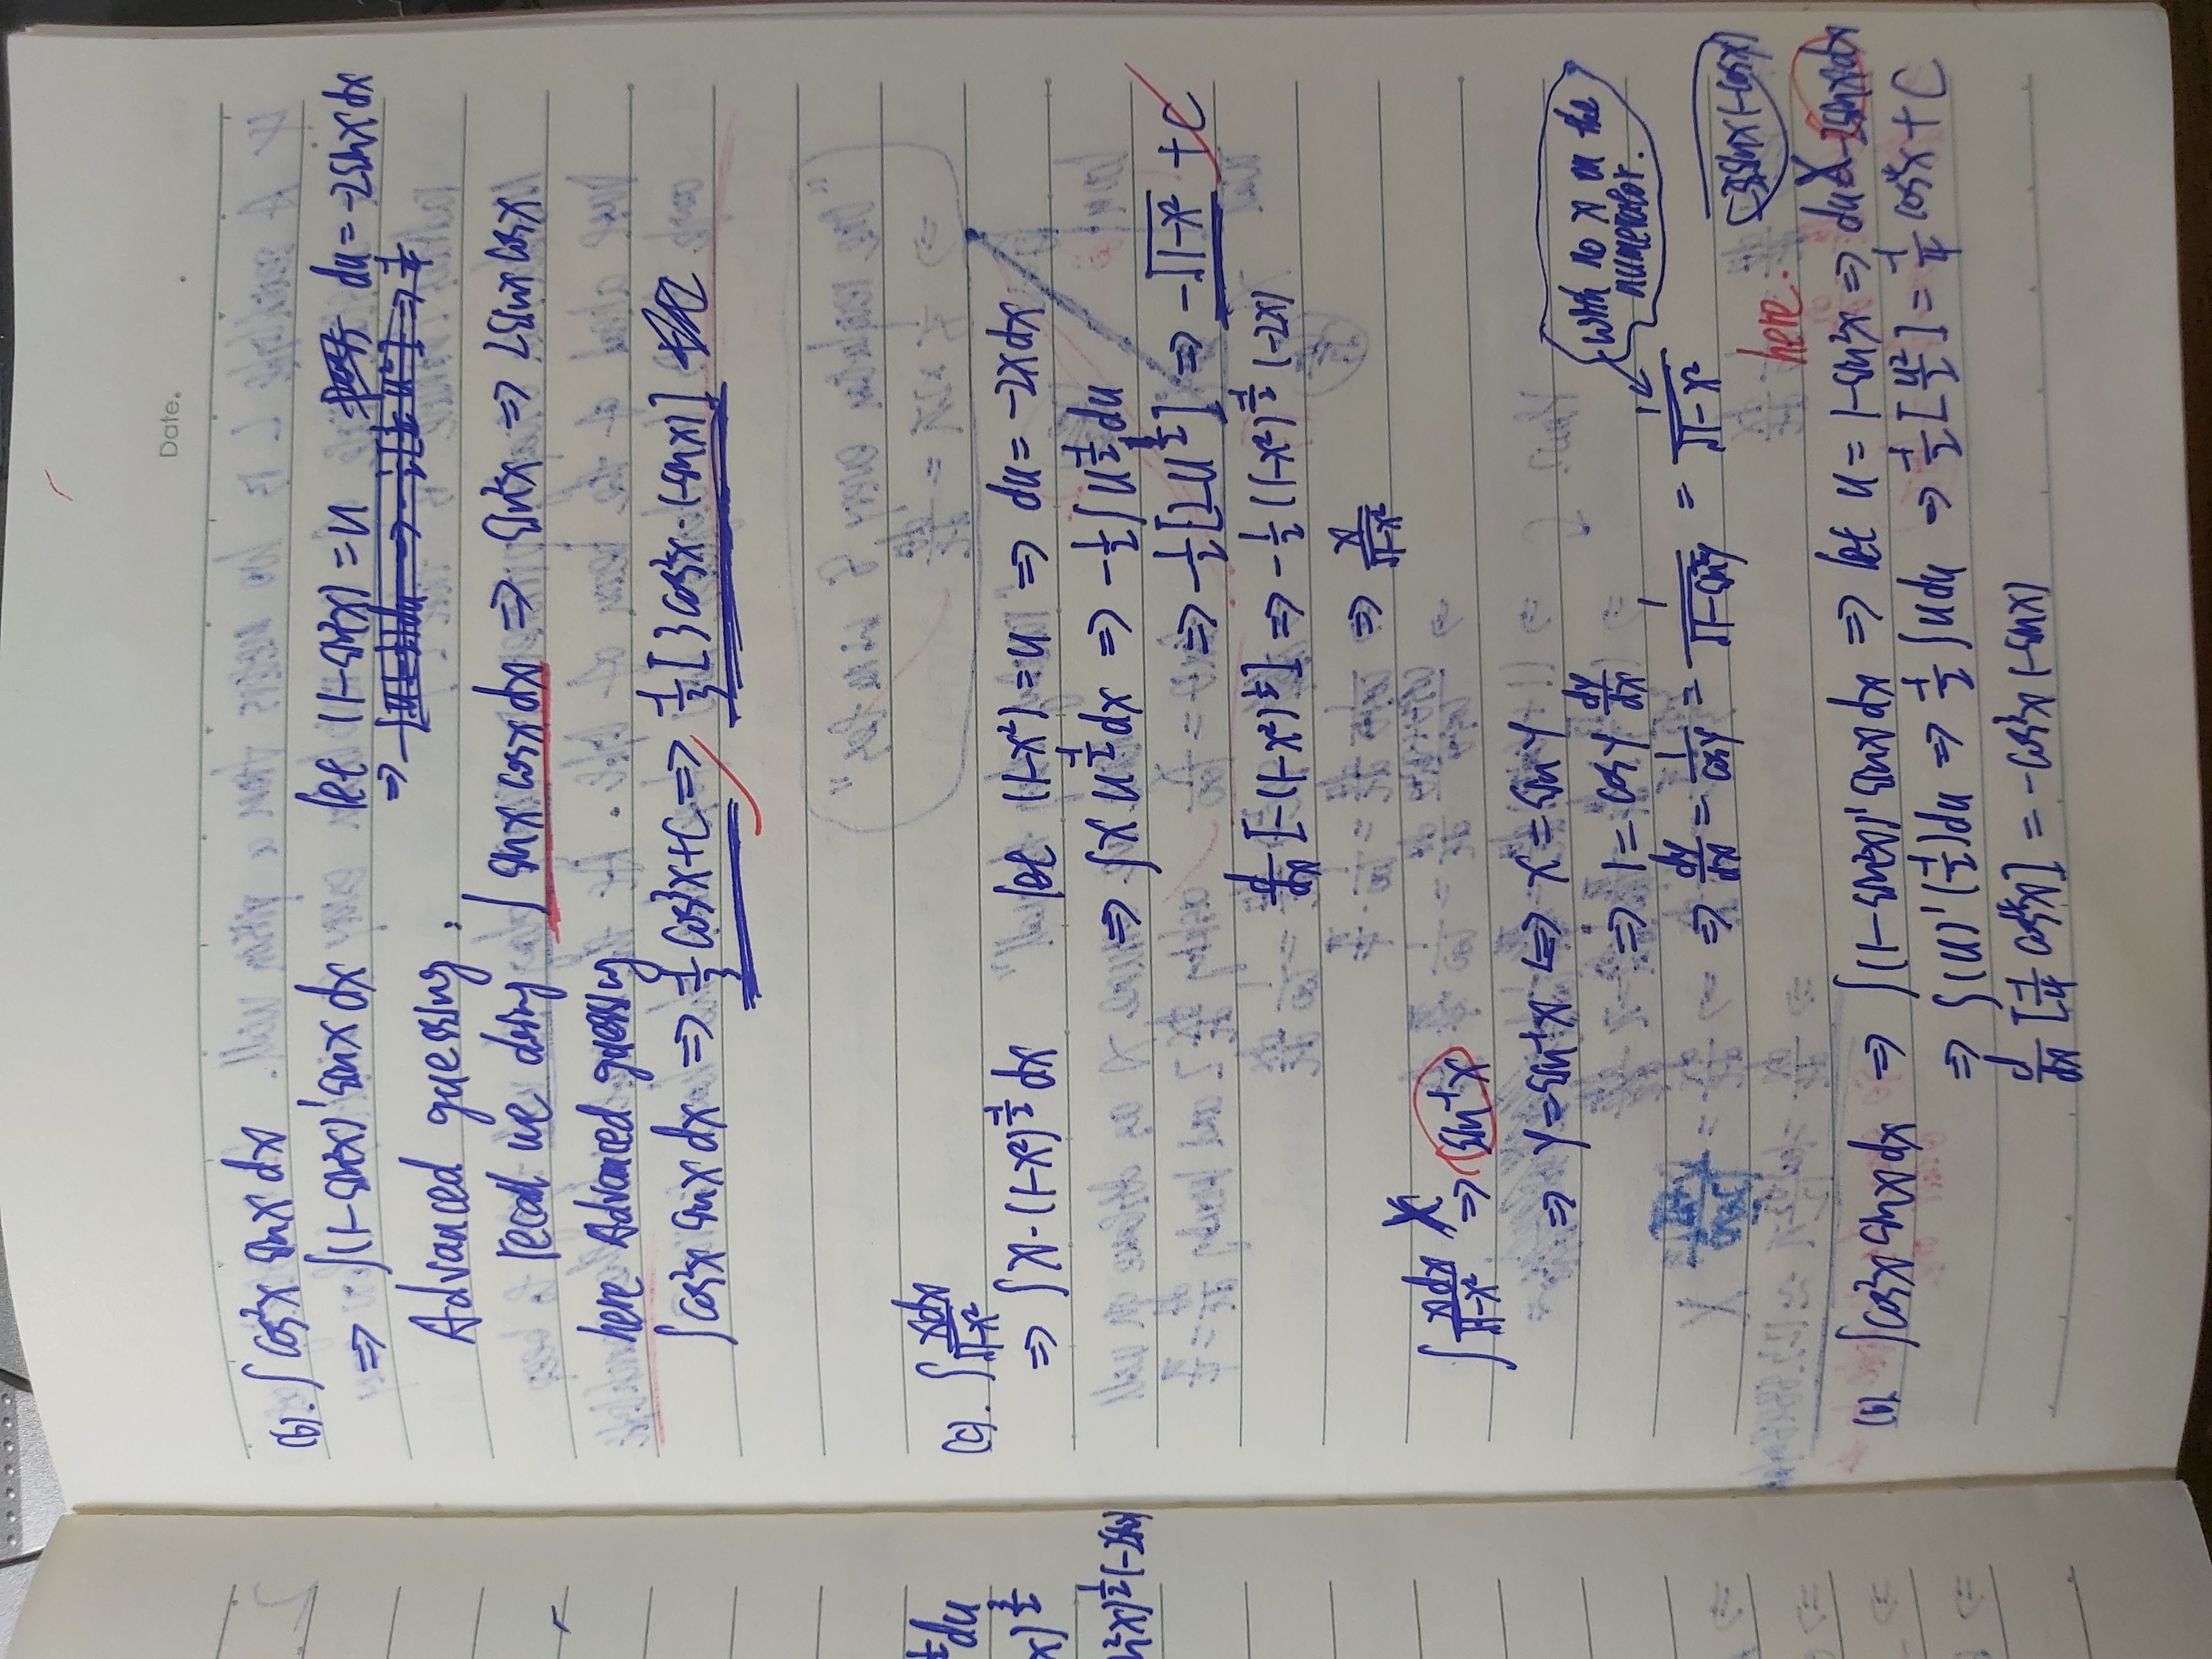 Date.
(b). ∫cos²x sinx dx
⇒ ∫(1-sin²x)' sinx dx let (1-sin²x) = u du = -2sinx dx
⇒
Advanced guessing,
recall we doing ∫ sinx cosx dx ⇒ sin²x ⇒ 2sinx cosx
here Advanced guessing
∫cos²x sinx dx ⇒ -1/3 cos³x+c ⇒ -1/3 [3cos²x·(-sinx)]
(c). ∫ xdx/√1-x²
⇒ ∫x·(1-x²)^-1/2 dx let (1-x²) = u ⇒ du = -2xdx
½du
⇒ ∫x u^-1/2 dx ⇒ -1/2 ∫u^-1/2 du
⇒ -1/2 [2u^1/2] ⇒ -√1-x² + c
d/dx [-(1-x²)^1/2] ⇒ -1/2 (1-x²)^-1/2 (-2x)
⇒ x/√1-x²
∫ xdx/√1-x² X ⇒ sin⁻¹x
⇒ y = sin⁻¹x ⇔ x = siny
⇒ 1 = cosy dy/dx
with no x on the
numerator.
⇒ dy/dx = 1/cosy = 1/√1-sin²y = 1/√1-x²
-2sinx(-cosx)
here.
(b). ∫cos²x sinx dx ⇒ ∫(1-sin²x)' sinx dx ⇒ let u = 1-sin²x ⇒ du X -2sinxdx
⇒ ∫(u)' (-1/2)du ⇒ -1/2 ∫u du ⇒ -1/2 [u²/2] = -1/4 cos⁴x + C
d/dx [-1/4 cos⁴x] = -cos³x (-sinx)